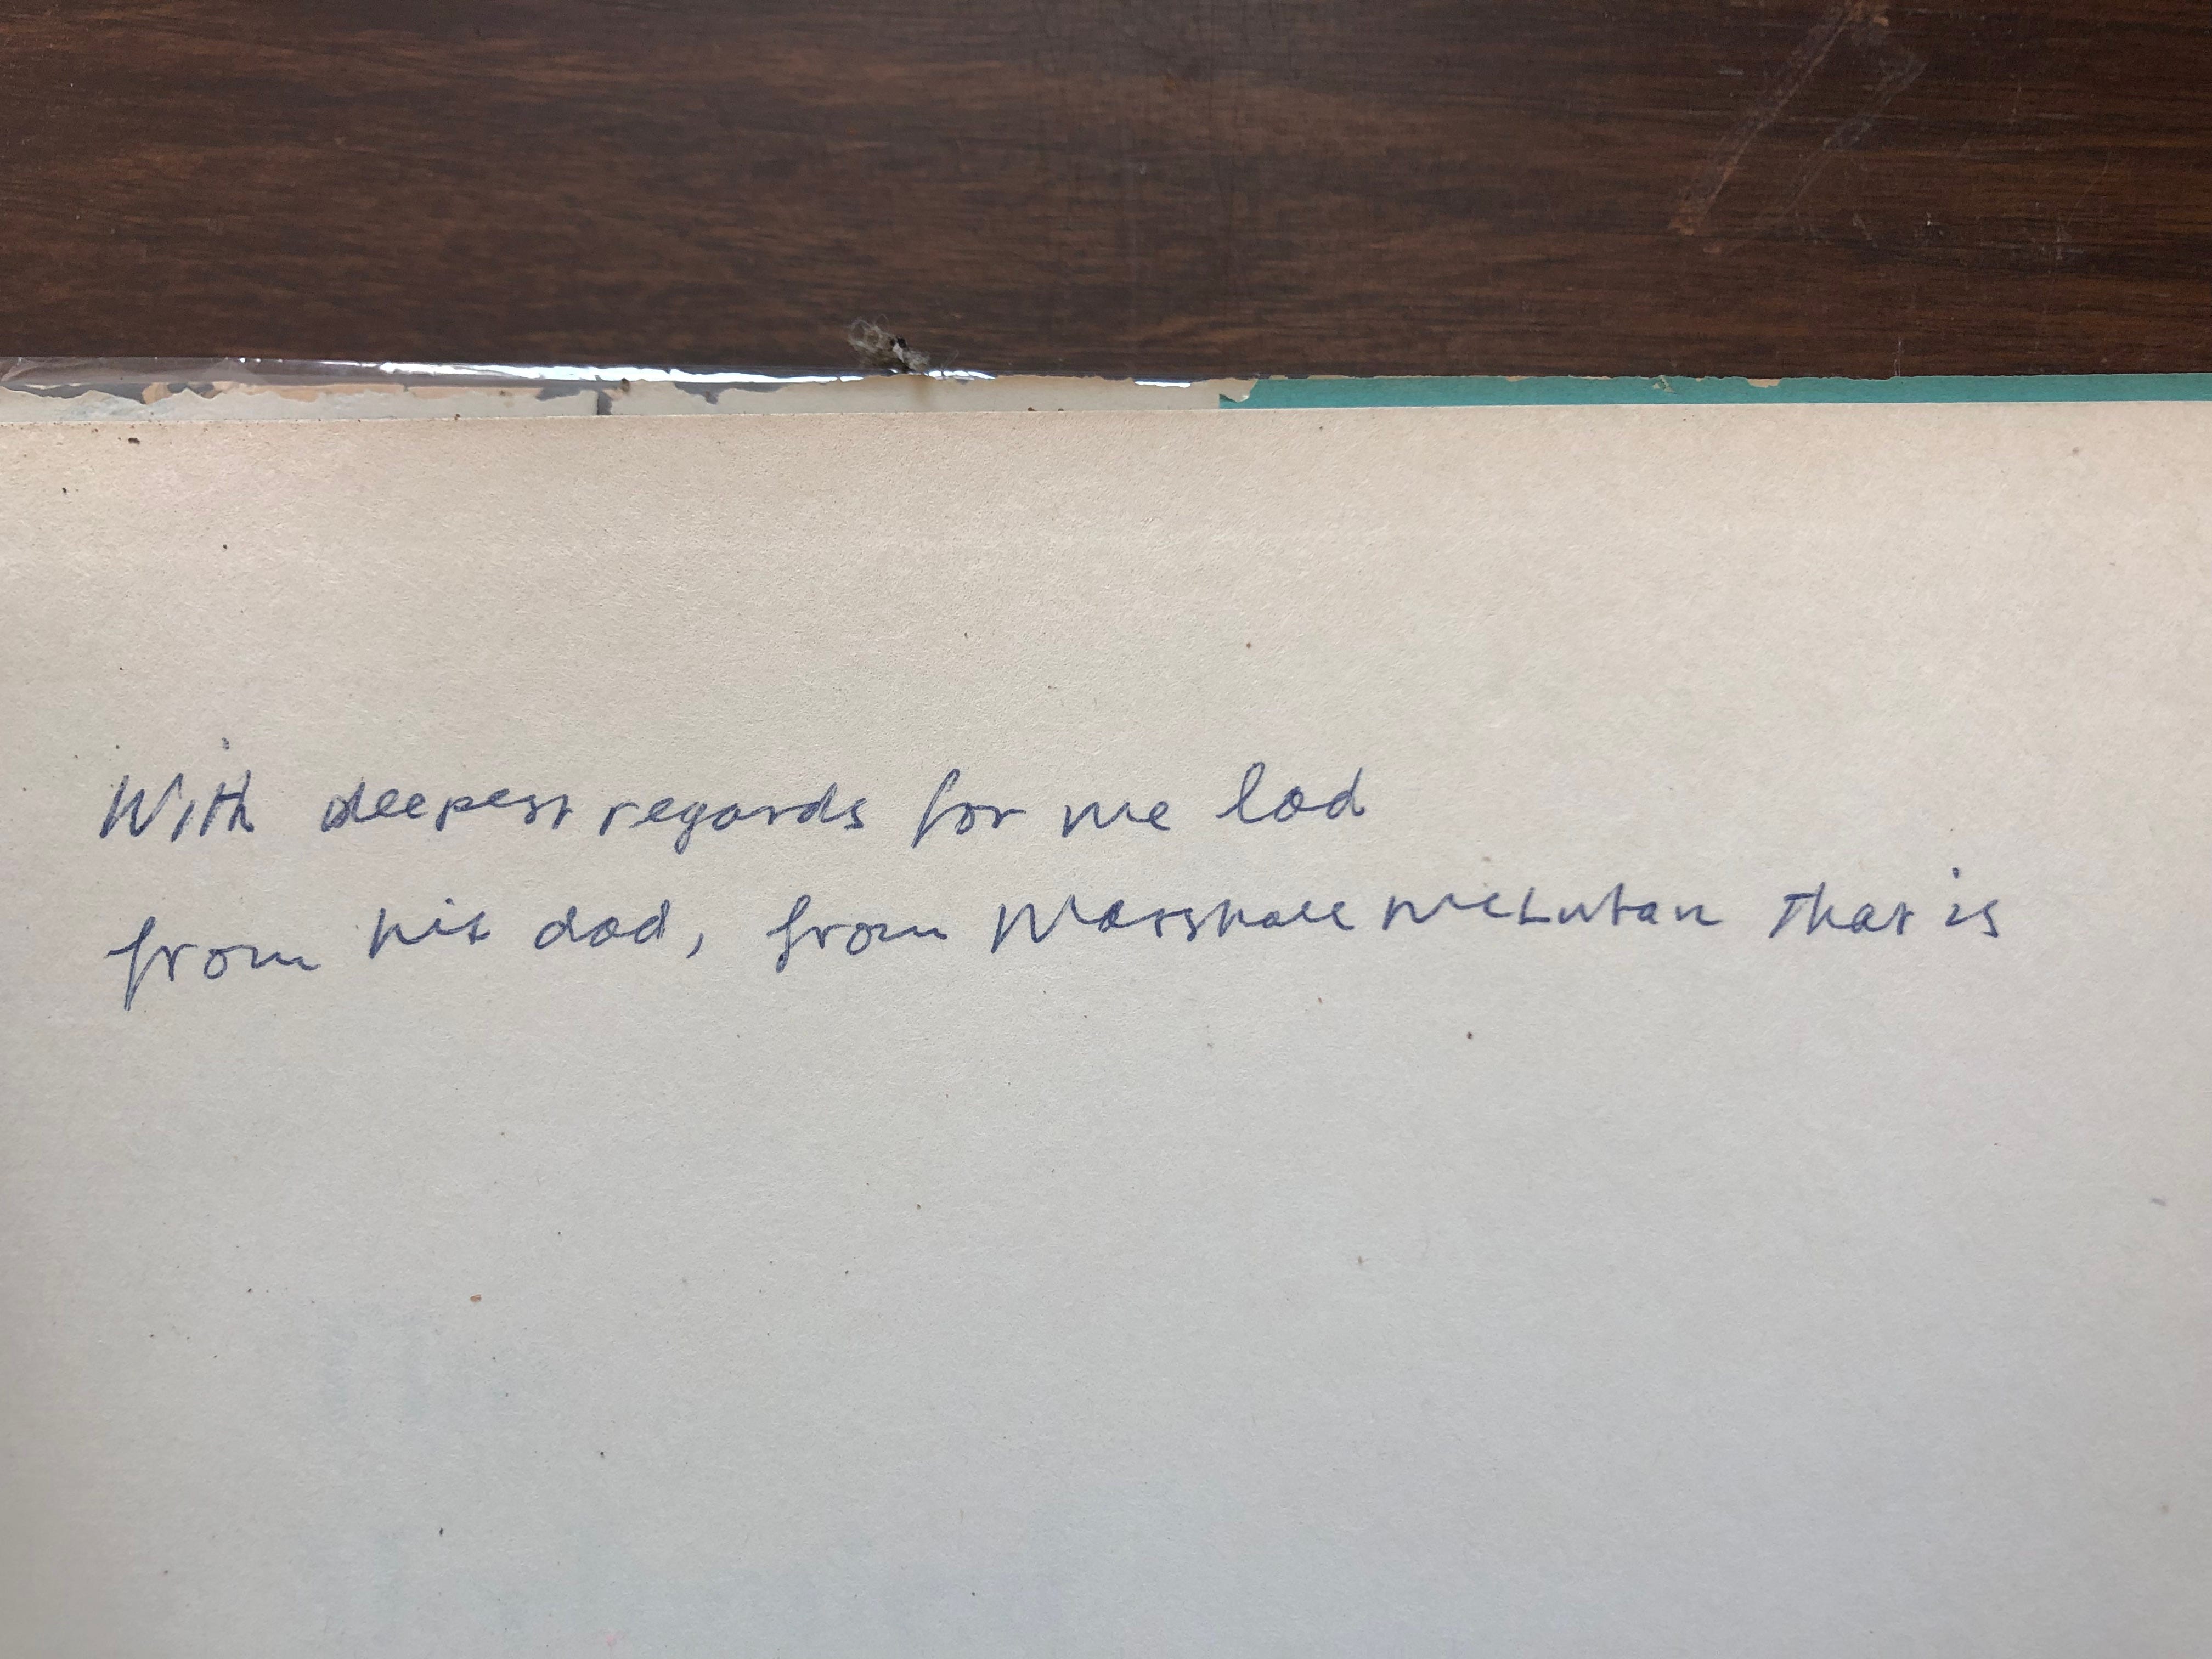 With deepest regards for me lad
from his dad, from Marshall McLuhan that is